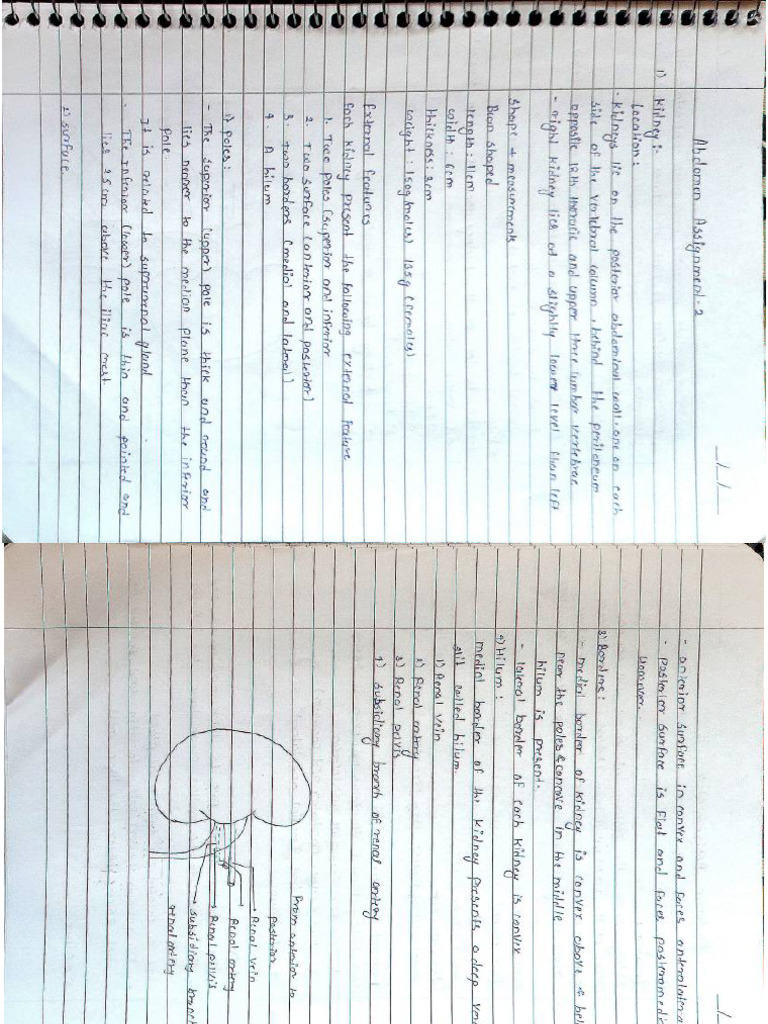 Abdomen Assignment-2
1) Kidney :-
Location :
- Kidneys lie on the posterior abdominal wall, one on each
side of the vertebral column, behind the peritoneum
opposite 12th thoracic and upper three lumber vertebrae
- right kidney lies at a slightly lower level than left
Shape + measurements
Bean shaped
length : 11cm
width : 6cm
thickness : 3cm
weight : 150g (males) 135g (females)
External features
Each kidney present the following external feature
1. Two poles (superior and inferior
2. Two surface (anterior and posterior)
3. Two borders (medial and lateral)
4. A hilum
1) poles :
- The superior (upper) pole is thick and round and
lies nearer to the median plane than the inferior
pole
It is related to suprarenal gland
- The inferior (lower) pole is thin and pointed and
lies 2.5cm above the iliac crest.
2) surface.
- anterior surface is convex and faces anterolatera
- posterior surface is flat and faces posteromedi
however.
3) Borders :
- medial border of kidney is convex above & bel
near the poles & concave in the middle
hilum is present.
- lateral border of each kidney is convex
4) Hilum :
medial border of the kidney presents a deep ver
slit called hilum
1) Renal vein
2) Renal artery
3) Renal pelvis
4) subsidiary branch of renal artery
From anterior to
posterior
Renal vein
Renal artery
Renal pelvis
subsidiary branch
renal artery